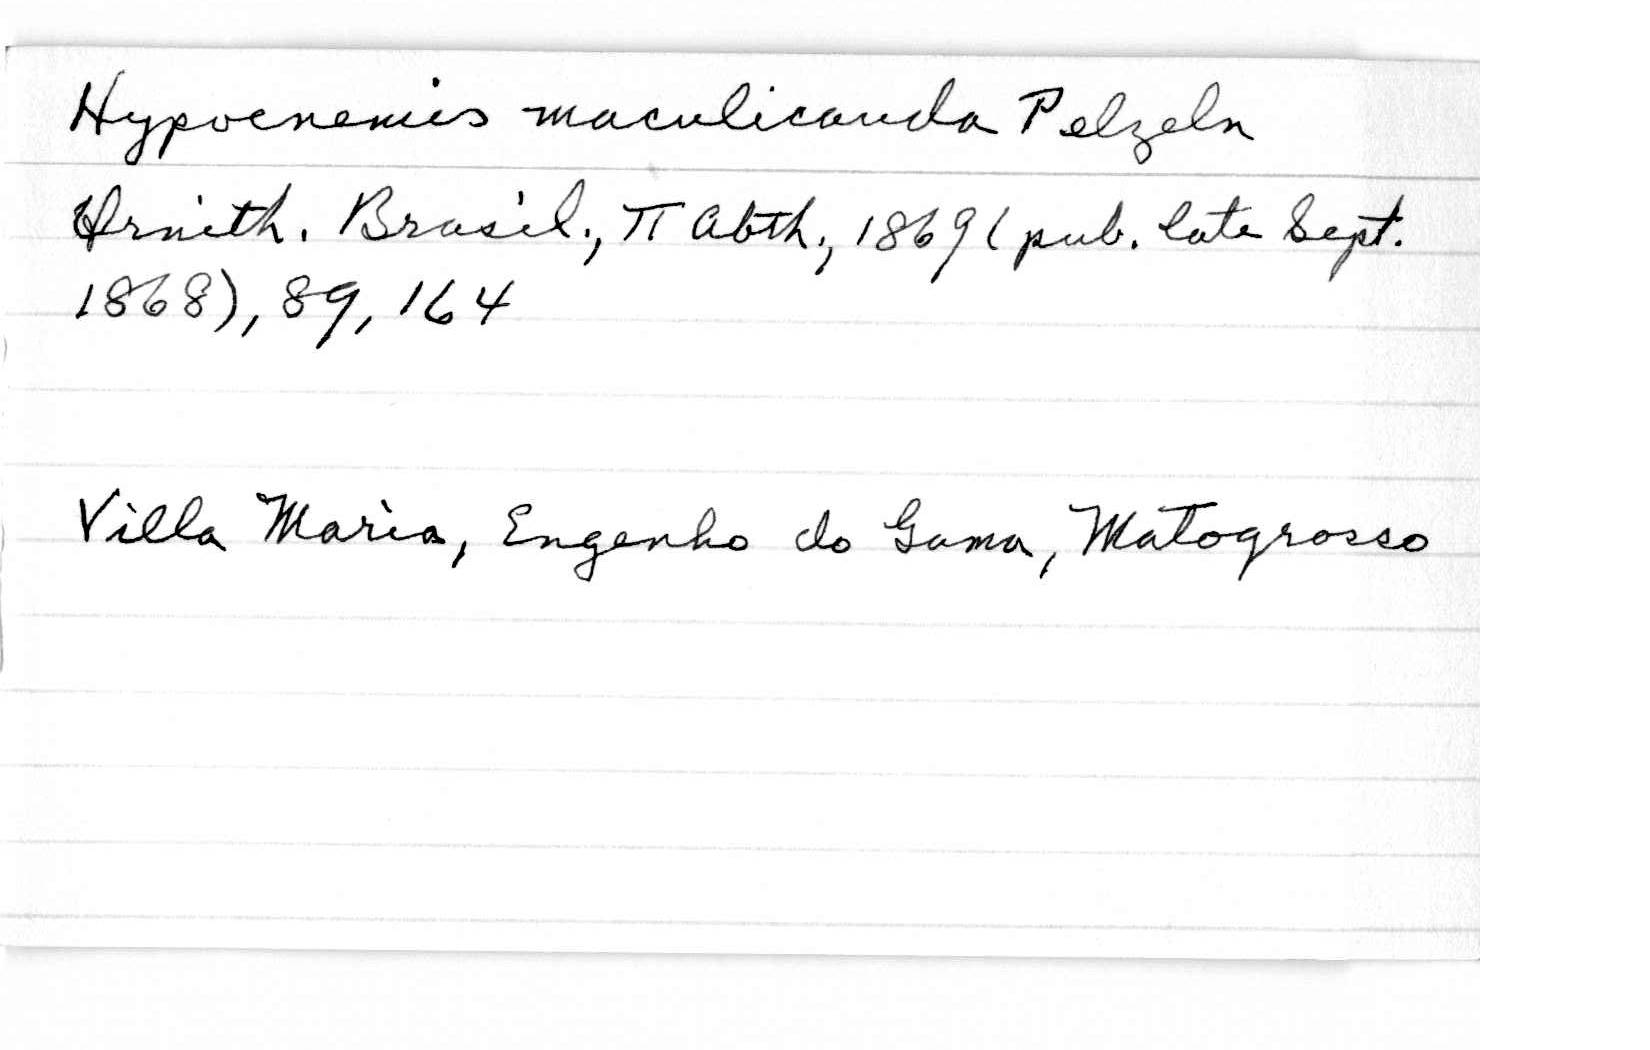 Hypocnemis maculicauda Pelzeln
Ornith. Brasil., II Abth., 1869 (pub. late Sept.
1868), 89, 164
Villa Maria, Engenho do Gama, Matogrosso